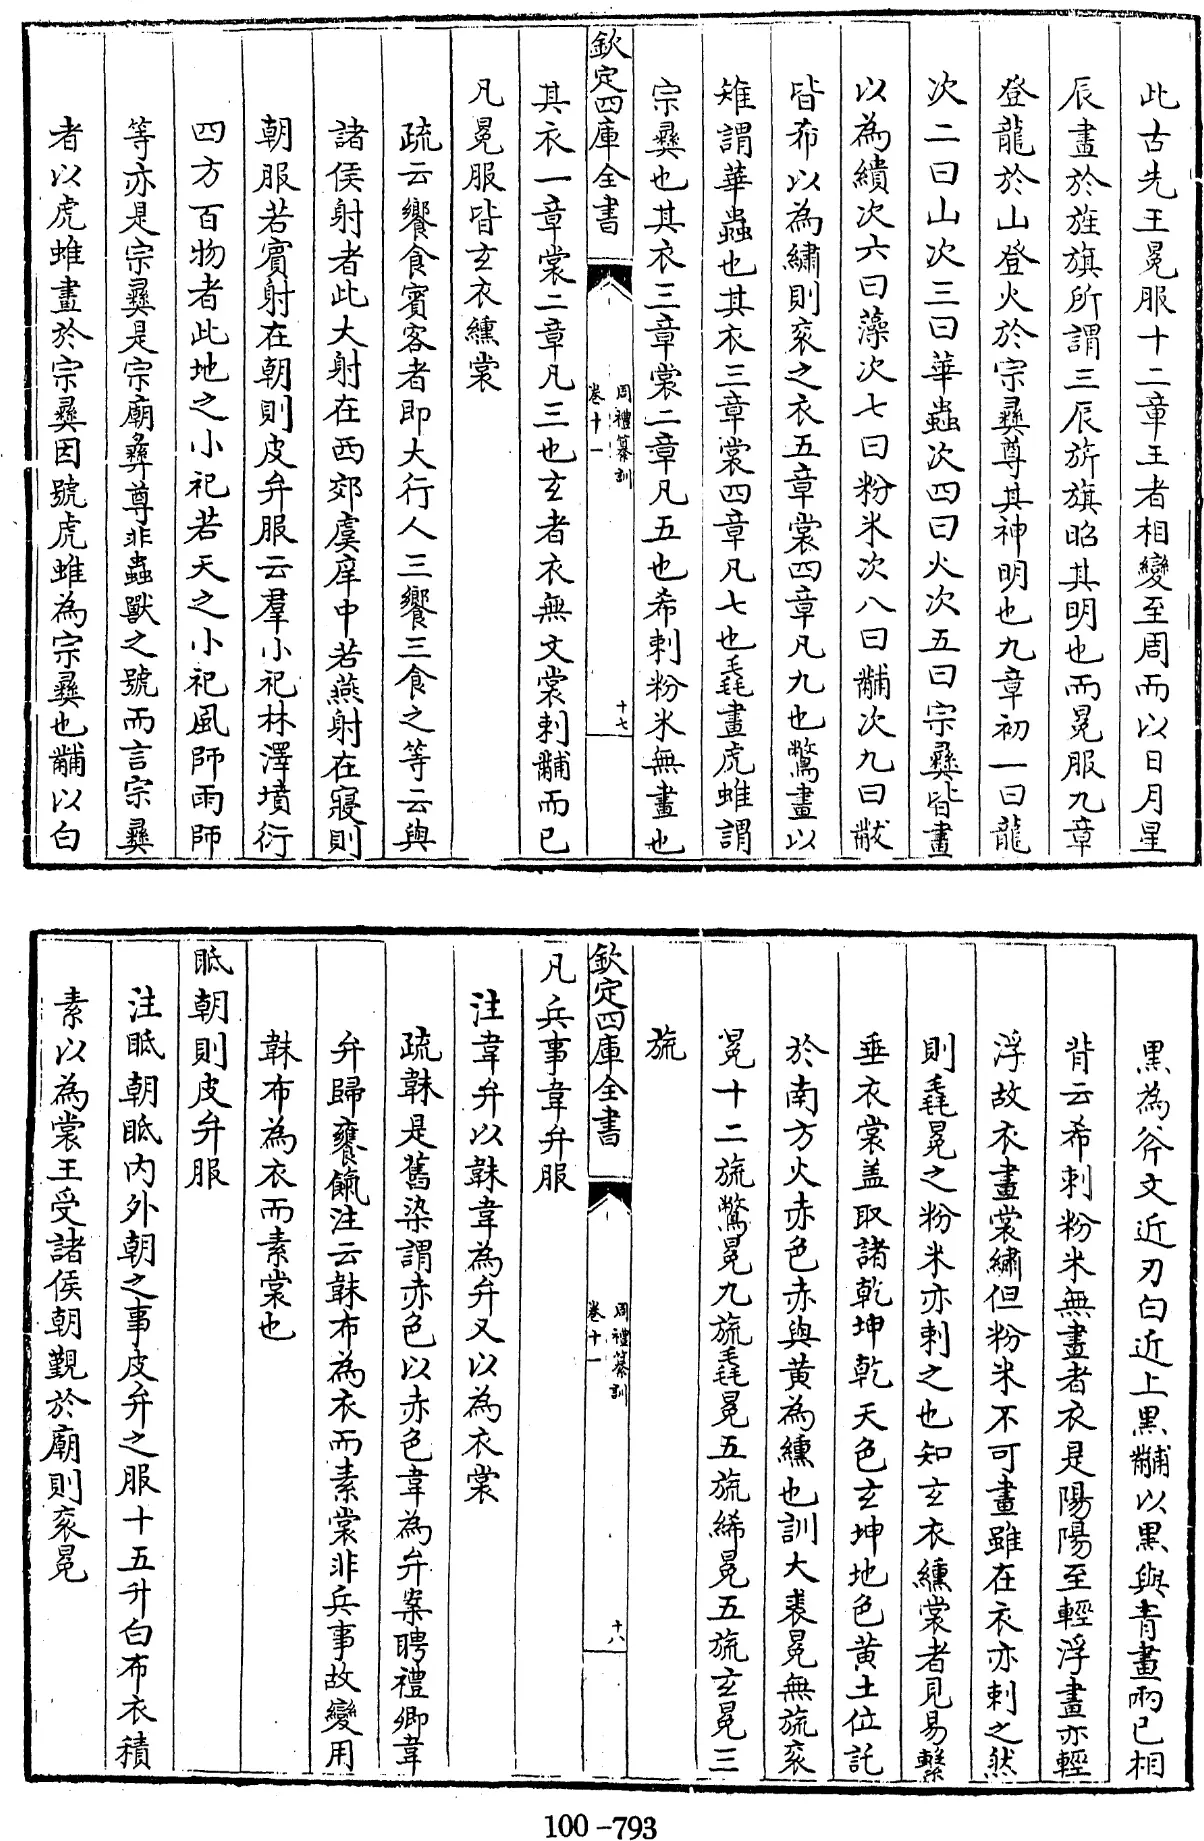 此古先王冕服十二章王者相變至周而以日月星
辰畫於旌旗所謂三辰旂旗昭其明也而冕服九章
登龍於山登火於宗彝尊其神明也九章初一曰龍
次二曰山次三曰華蟲次四曰火次五曰宗彝皆畫
以為繢次六曰藻次七曰粉米次八曰黼次九曰黻
皆希以為繡則衮之衣五章裳四章凡九也鷩畫以
雉謂華蟲也其衣三章裳四章凡七也毳畫虎蜼謂
宗彝也其衣三章裳二章凡五也希刺粉米無畫也
欽定四庫全書
周禮纂訓
卷十一
十七
其衣一章裳二章凡三也玄者衣無文裳刺黼而已
凡冕服皆玄衣纁裳
疏云饗食賓客者即大行人三饗三食之等云與
諸侯射者此大射在西郊虞庠中若燕射在寢則
朝服若賓射在朝則皮弁服云羣小祀林澤墳衍
四方百物者此地之小祀若天之小祀風師雨師
等亦是宗彝是宗廟彝尊非蟲獸之號而言宗彝
者以虎蜼畫於宗彝因號虎蜼為宗彝也黼以白
黒為斧文近刃白近上黒黼以黒與青畫兩已相
背云希刺粉米無畫者衣是陽陽至輕浮畫亦輕
浮故衣畫裳繡但粉米不可畫雖在衣亦刺之然
則毳冕之粉米亦刺之也知玄衣纁裳者見易繫
垂衣裳盖取諸乾坤乾天色玄坤地色黄土位託
於南方火赤色赤與黄為纁也訓大裘冕無旒衮
冕十二旒鷩冕九旒毳冕五旒絺冕五旒玄冕三
旒
欽定四庫全書
周禮纂訓
卷十一
十八
凡兵事韋弁服
注韋弁以韎韋為弁又以為衣裳
疏韎是舊染謂赤色以赤色韋為弁案聘禮卿韋
弁歸饔餼注云韎布為衣而素裳非兵事故變用
韎布為衣而素裳也
眡朝則皮弁服
注眡朝眡内外朝之事皮弁之服十五升白布衣積
素以為裳王受諸侯朝覲於廟則衮冕
100-793